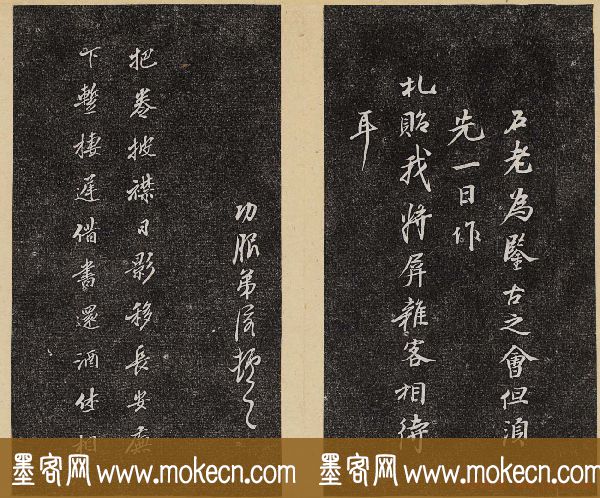 石老為鑒古之會但須
先一日作
札貽我將屏雜客相待
耳
功服弟
頓
把卷披襟日影移長安廡
下暫棲遲借書還酒
相
墨客网 www.mokecn.com
墨客网 www.mokecn.com